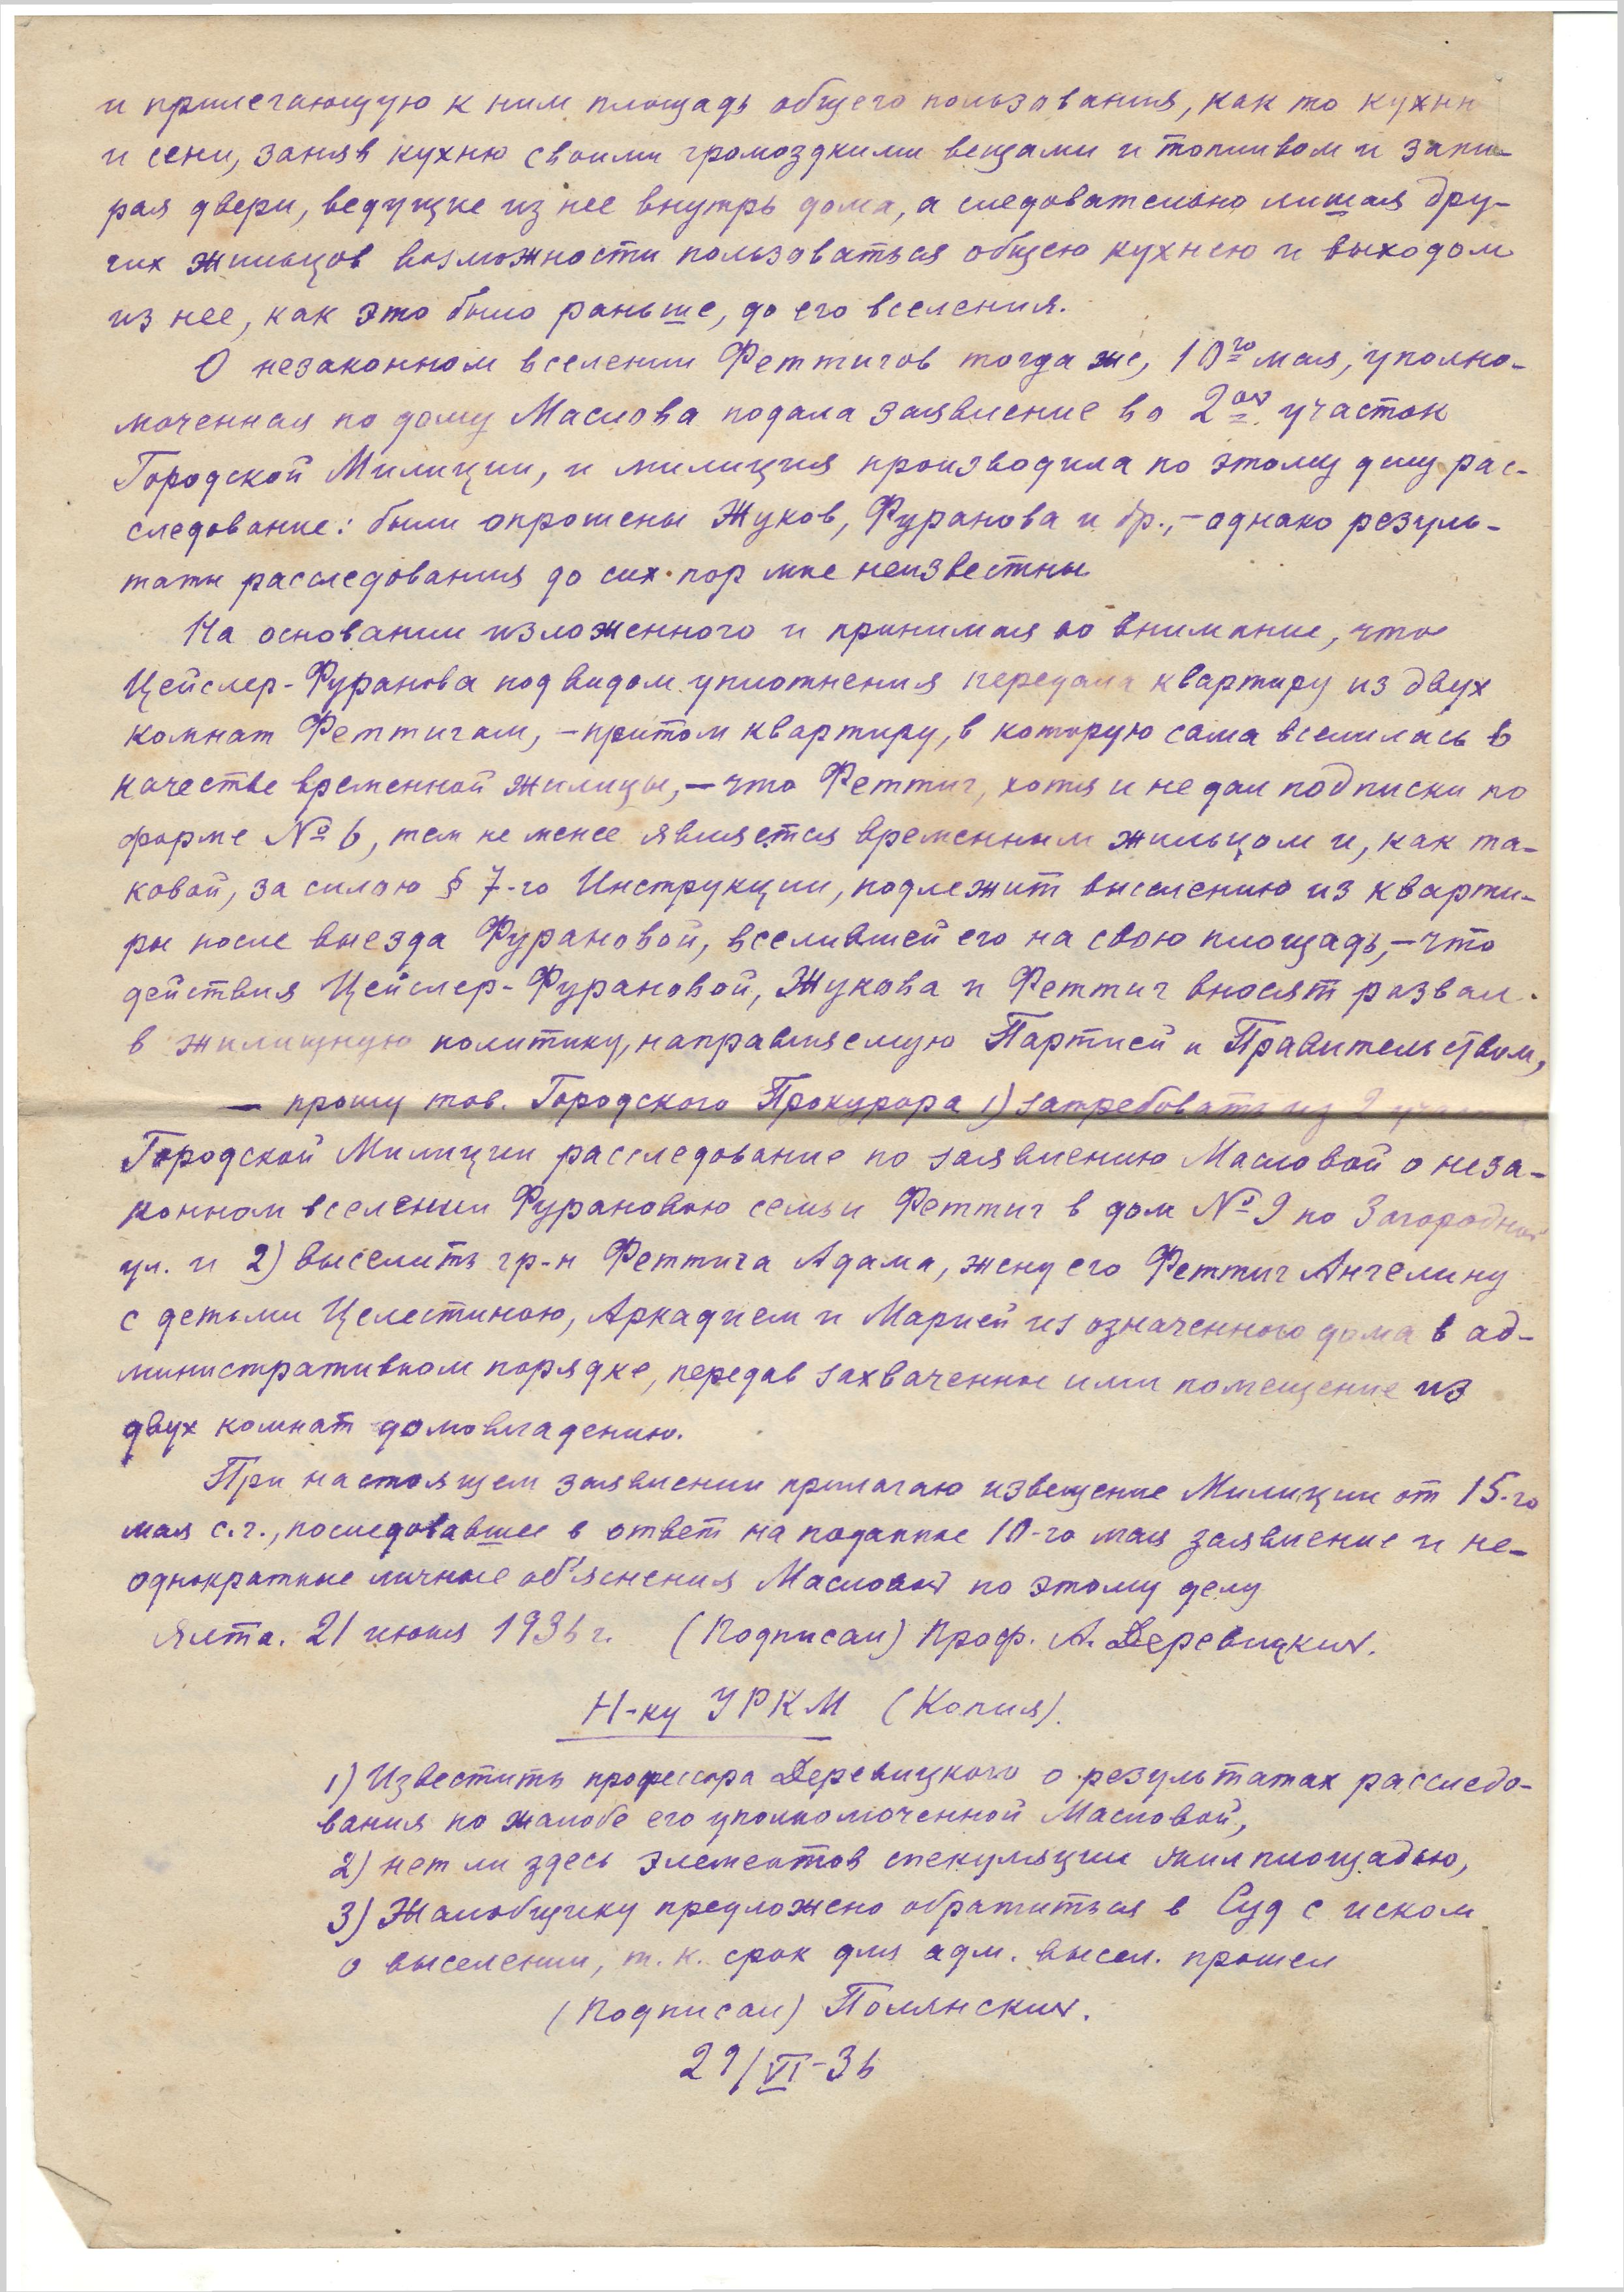 и прилегающую к ним площадь общего пользования, как то кухни
и сени, заняв кухню своими громоздкими вещами и топливом и запи-
рая двери, ведущие из нее внутрь дома, а следовательно лишая дру-
гих жильцов возможности пользоваться общею кухнею и выходом
из нее, как это было раньше, до его вселения.
О незаконном вселении Феттигов тогда же, 10го мая, уполно-
моченная по дому Маслова подала заявление во 2ой участок
Городской Милиции, и милиция производила по этому делу рас-
следование: были опрошены Жуков, Фуранова и др., – однако резуль-
таты расследования до сих пор мне неизвестны
На основании изложенного и принимая во внимание, что
Цейслер-Фуранова под видом уплотнения передала квартиру из двух
комнат Феттигам, – притом квартиру, в которую сама вселилась в
качестве временной жилицы, – что Феттиг, хотя и не дал подписки по
форме № 6, тем не менее является временным жильцом и, как та-
ковой, за силою § 7-го Инструкции, подлежит выселению из кварти-
ры после выезда Фурановой, вселившей его на свою площадь, – что
действия Цейслер-Фурановой, Жукова и Феттиг вносят развал
в жилищную политику, направляемую Партией и Правительством,
— прошу тов. Городского Прокурора 1) затребовать из 2
Городской Милиции расследование по заявлению Масловой о неза-
конном вселении Фурановою семьи Феттиг в дом № 9 по Загородной
ул. и 2) выселить гр-н Феттига Адама, жену его Феттиг Ангелину
с детьми Целестиною, Аркадием и Марией из означенного дома в ад-
министративном порядке, передав захваченное ими помещение из
двух комнат домовладению.
При настоящем заявлении прилагаю извещение Милиции от 15-го
мая с.г., последовавшее в ответ на поданное 10-го мая заявление и не-
однократные личные об'яснения Масловой по этому делу
Ялта. 21 июня 1936 г. (Подписал) Проф. А. Деревицкий.
Н-ку УРКМ (Копия).
1) Известить профессора Деревицкого о результатах расследо-
вания по жалобе его уполномоченной Масловой,
2) нет ли здесь элементов спекуляции жилплощадью,
3) Жалобщику предложено обратиться в Суд с иском
о выселении, т. к. срок для адм. высел. прошел
(Подписал) Полянский.
21/VI-36